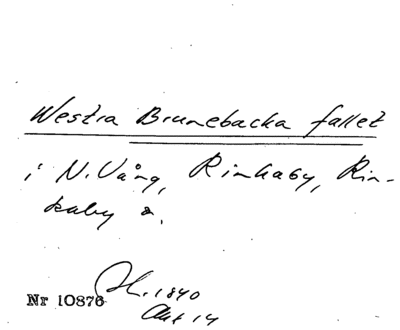 Westra Brunebacka fallet
i N. Vång, Rinkaby, Rin-
kaby s.
Nr 10876
1840
Akt 14